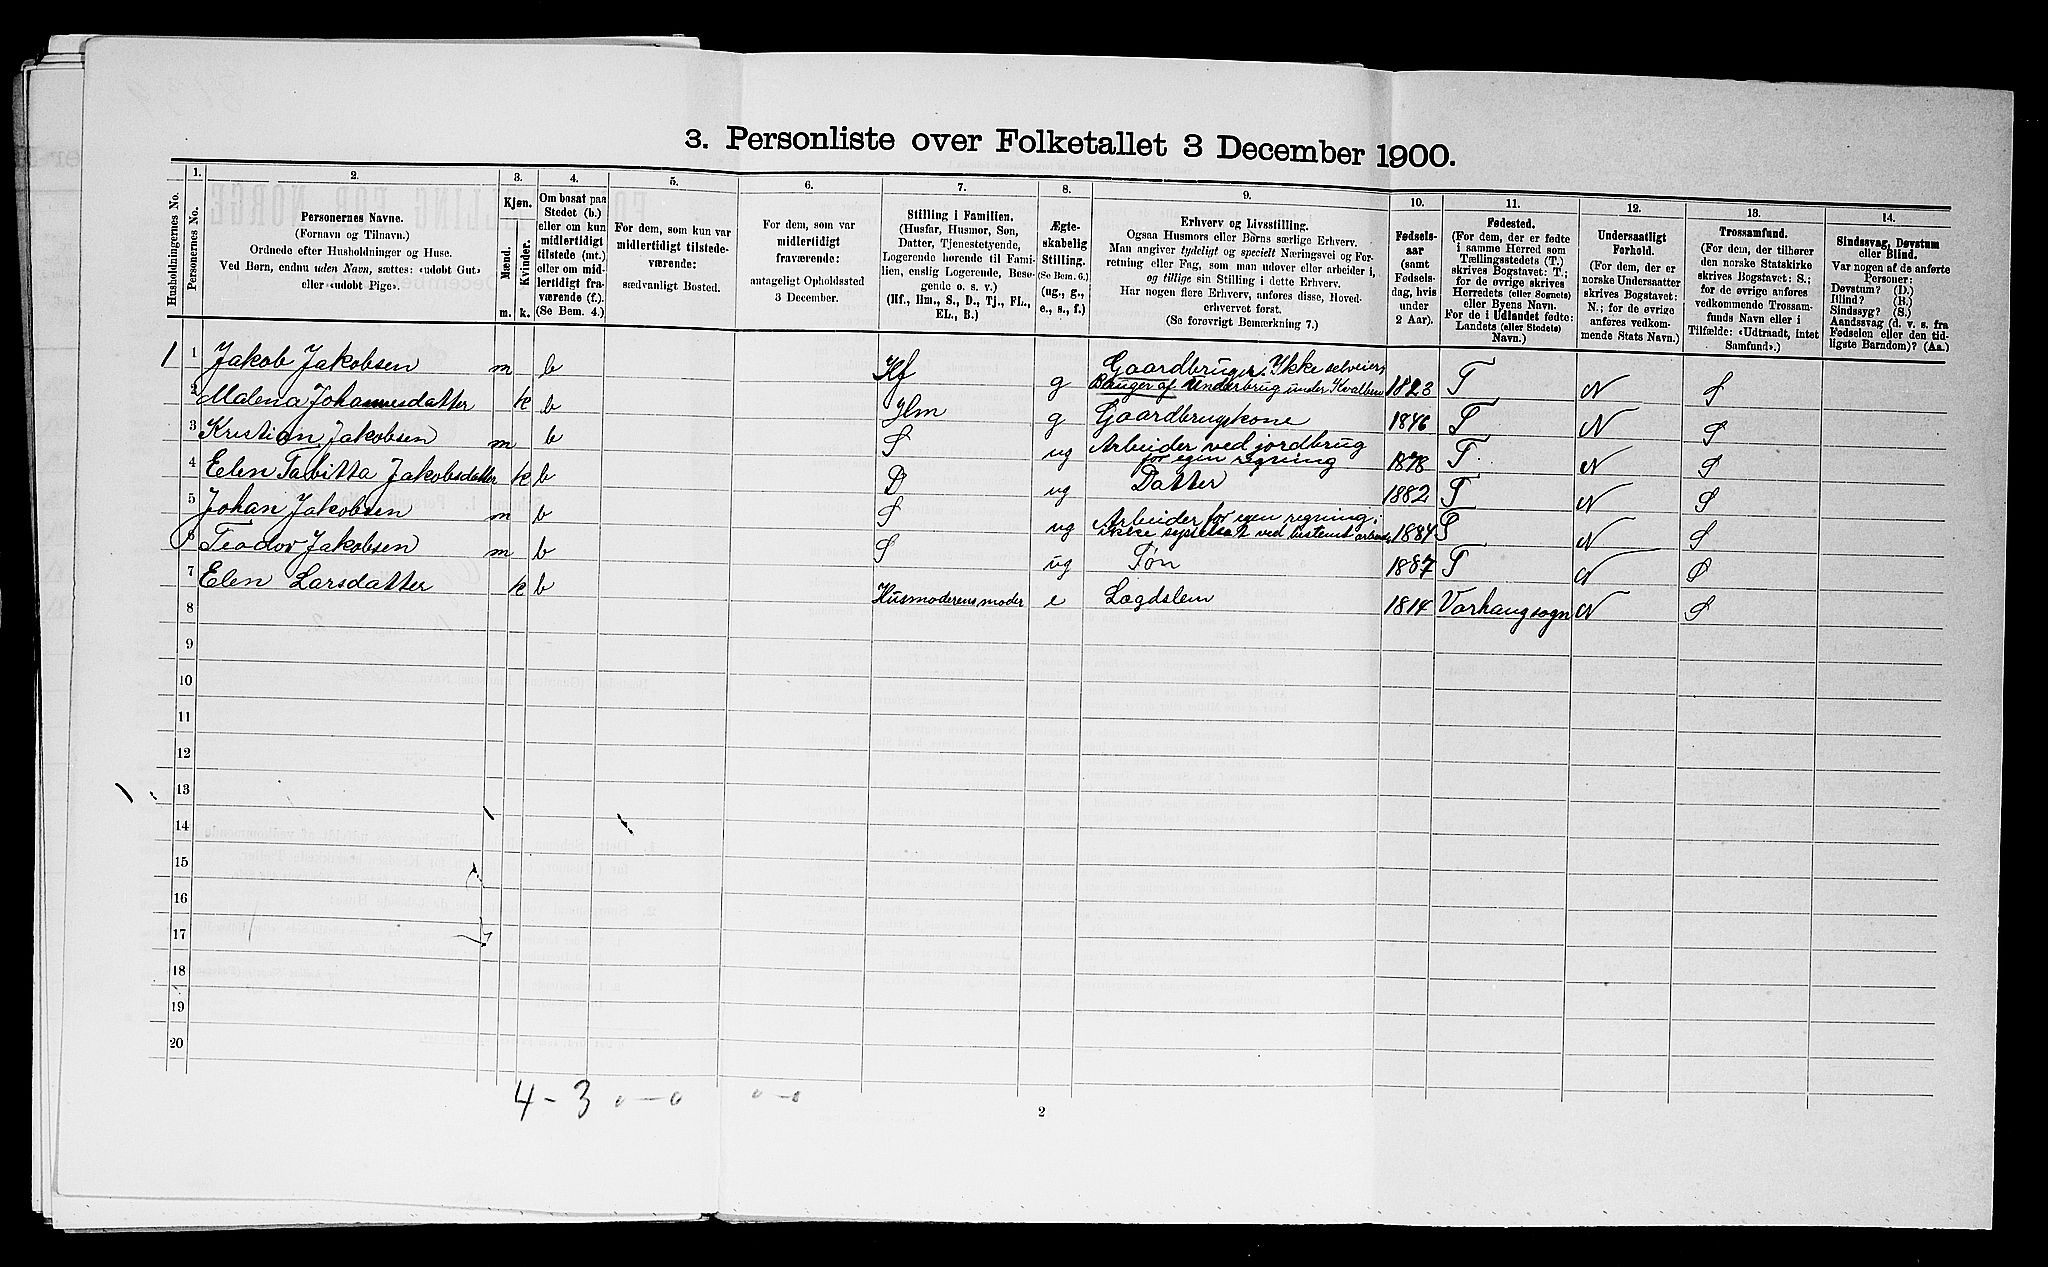 3. Personliste over Folketallet 3 December 1900.
Husholdningernes No.
1.
Personernes No.
2.
Personernes Navne.
(Fornavn og Tilnavn.)
Ordnede efter Husholdninger og Huse.
Ved Børn, endnu uden Navn, sættes: «udøbt Gut»
eller «udøbt Pige».
3.
Kjøn.
Mænd.
Kvinder.
m. k.
4.
Om bosat paa
Stedet (b.)
eller om kun
midlertidigt
tilstede (mt.)
eller om mid-
lertidigt fra-
værende (f.).
(Se Bem. 4.)
5.
For dem, som kun var
midlertidigt tilstede-
værende:
sædvanligt Bosted.
6.
For dem, som var
midlertidigt
fraværende:
antageligt Opholdssted
3 December.
7.
Stilling i Familien.
(Husfar, Husmor, Søn,
Datter, Tjenestetyende,
Logerende hørende til Fami-
lien, enslig Logerende, Besø-
gende o. s. v.)
(Hf., Hm., S., D., Tj., FL.,
EL., B.)
8.
Ægte-
skabelig
Stilling.
(Se Bem. 6.)
(ug., g.,
e., s., f.)
9.
Erhverv og Livsstilling.
Ogsaa Husmors eller Børns særlige Erhverv.
Man angiver tydeligt og specielt Næringsvei og For-
retning eller Fag, som man udøver eller arbeider i,
og tillige sin Stilling i dette Erhverv.
Har nogen flere Erhverv, anføres disse, Hoved-
erhvervet først.
(Se forøvrigt Bemærkning 7.)
10.
Fødsels-
aar
(samt
Fødsels-
dag, hvis
under
2 Aar).
11.
Fødested.
(For dem, der er fødte
i samme Herred som
Tællingsstedets (T.)
skrives Bogstavet: T.;
for de øvrige skrives
Herredets (eller Sognets)
eller Byens Navn.
For de i Udlandet fødte:
Landets (eller Stedets)
Navn.)
12.
Undersaatligt
Forhold.
(For dem, der er
norske Undersaatter
skrives Bogstavet:
N.; for de øvrige
anføres vedkom-
mende Stats Navn.)
13.
Trossamfund.
(For dem, der tilhører
den norske Statskirke
skrives Bogstavet: S.;
for de øvrige anføres
vedkommende Trossam-
funds Navn eller i
Tilfælde: «Udtraadt, intet
Samfund».)
14.
Sindssvag, Døvstum
eller Blind.
Var nogen af de anførte
Personer:
Døvstum? (D.)
Blind? (B.)
Sindssyg? (S.)
Aandssvag (d. v. s. fra
Fødselen eller den tid-
ligste Barndom)? (Aa.)
1 1 Jakob Jakobsen m b Hf g Gaardbruger. Ikke selveier;
Bruger af Underbrug under Kvalbein 1823 T N S
2 Malena Johannesdatter k b Hm g Gaardbrugskone 1846 T N S
3 Kristian Jakobsen m b S ug Arbeider ved jordbrug
for egen regning 1878 T N S
4 Elen Tabitta Jakobsdatter k b D ug Datter 1882 T N S
5 Johan Jakobsen m b S ug Arbeider for egen regning;
ikke sysselsat ved bestemt arbeide 1884 T N S
6 Teodor Jakobsen m b S ug Søn 1887 T N S
7 Elen Larsdatter k b Husmoderens moder e Lægdslem 1814 Varhaug sogn N S
8
9
10
11
12
13
14
15
16
17
18
19
20
4 - 3 0 - 0 0 - 0
2